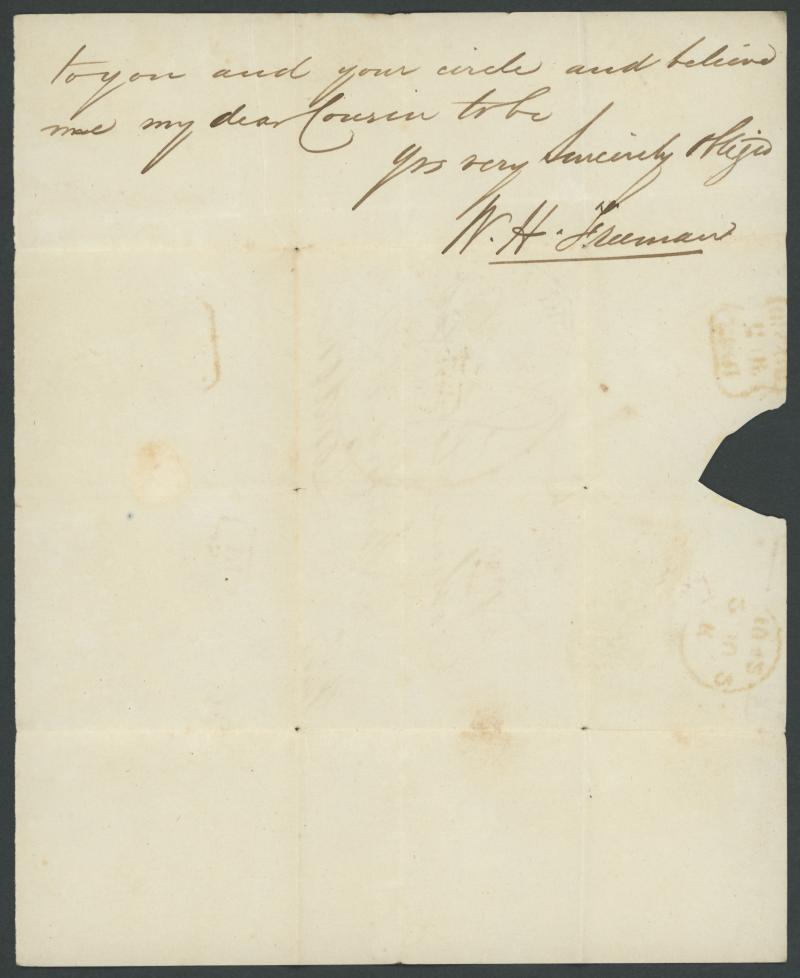 to you and your circle and believe
me my dear Cousin to be
Yrs very Sincerely Oblig'd
W. H. Freeman